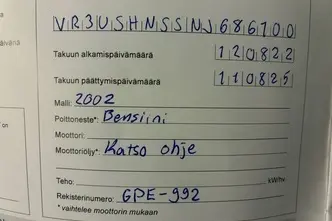 VR3USHNSSNJ686700
Takuun alkamispäivämäärä 120822
päivänä
Takuun päättymispäivämäärä 110825
Malli: 2002
Polttoneste*: Bensiini
Moottori:
Moottoriöljy*: Katso ohje
Teho: kW/hv.
Rekisterinumero: GPE-992
* vaihtelee moottorin mukaan